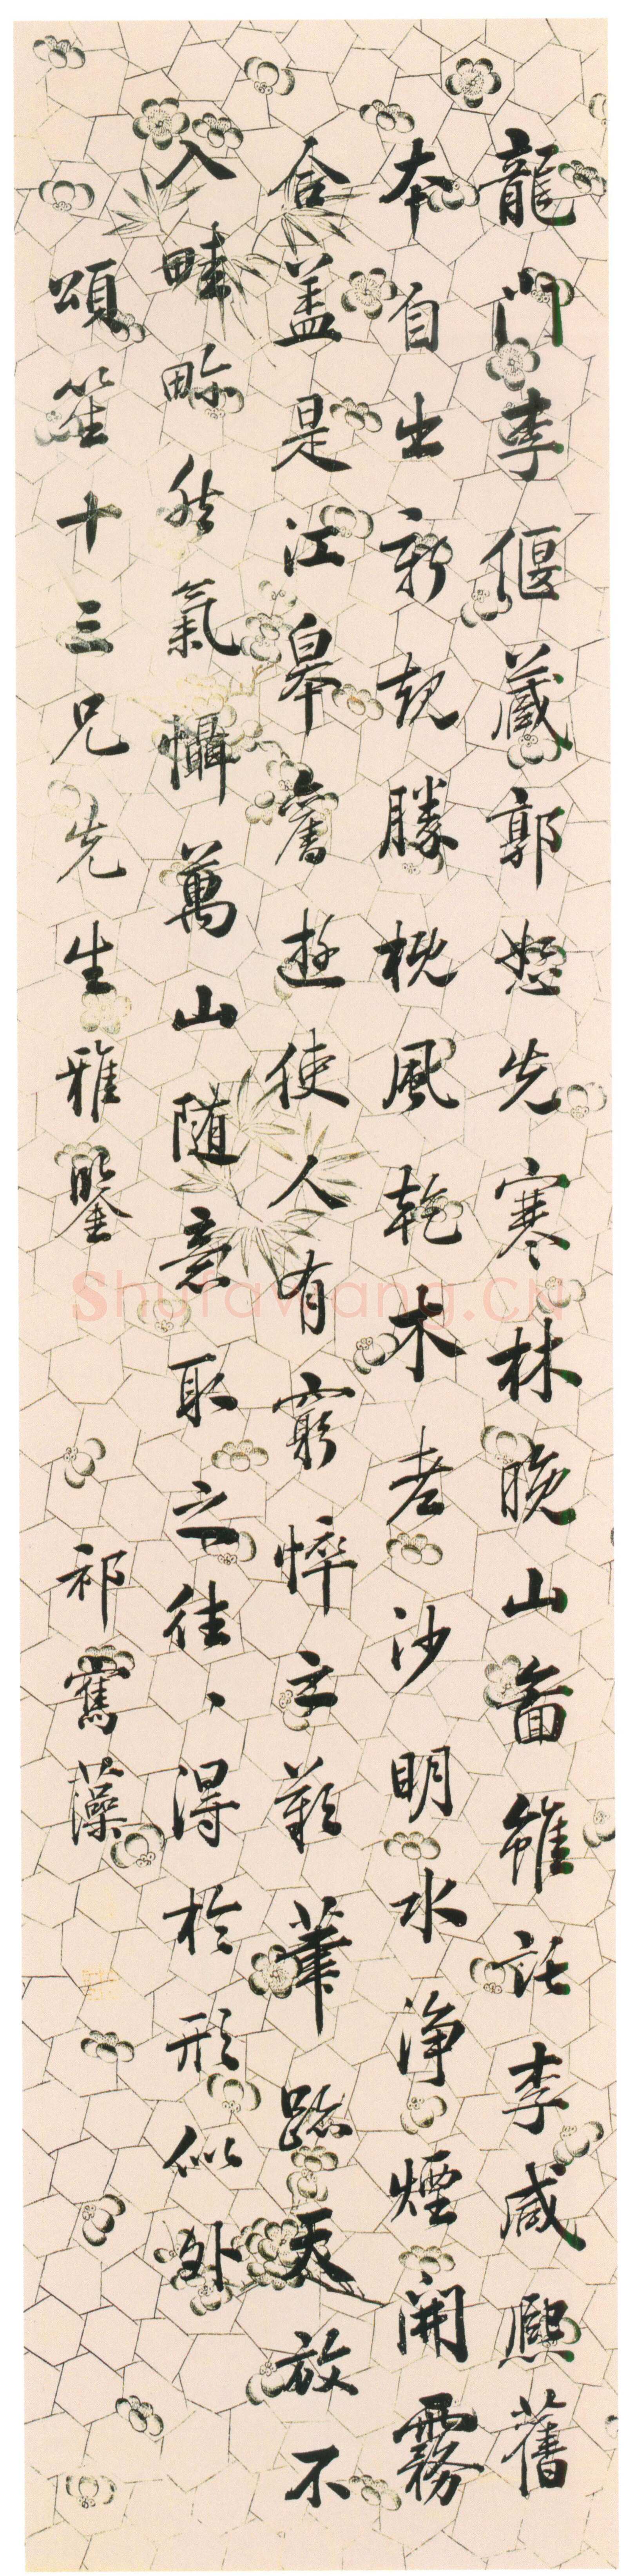 龍門李偃藏郭恕先寒林晚山啚雖託李咸熙舊
本自出新規勝概風乾木老沙明水淨煙開霧
合蓋是江皋舊遊使人有窮悴之歎筆跡天放不
入畦畛然氣懾萬山随意取之往〻得於形似外
頌笙十三兄先生雅鑒 祁寯藻
Shufawang.CN